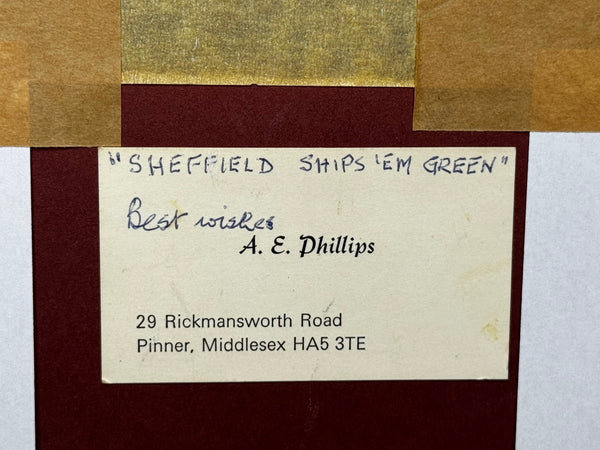 "SHEFFIELD SHIPS 'EM GREEN"
Best wishes
A. E. Phillips
29 Rickmansworth Road
Pinner, Middlesex HA5 3TE